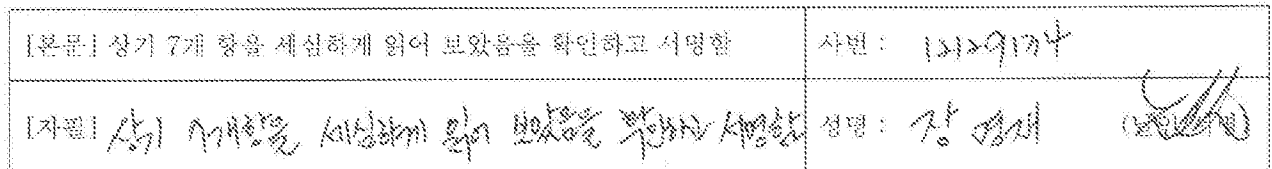 [본문] 상기 7개 항을 세심하게 읽어 보았음을 확인하고 서명함 사번 :
[자필] 상기 7개항을 세심하게 읽어 보았음을 확인하고 서명함 성명 : 장 영재